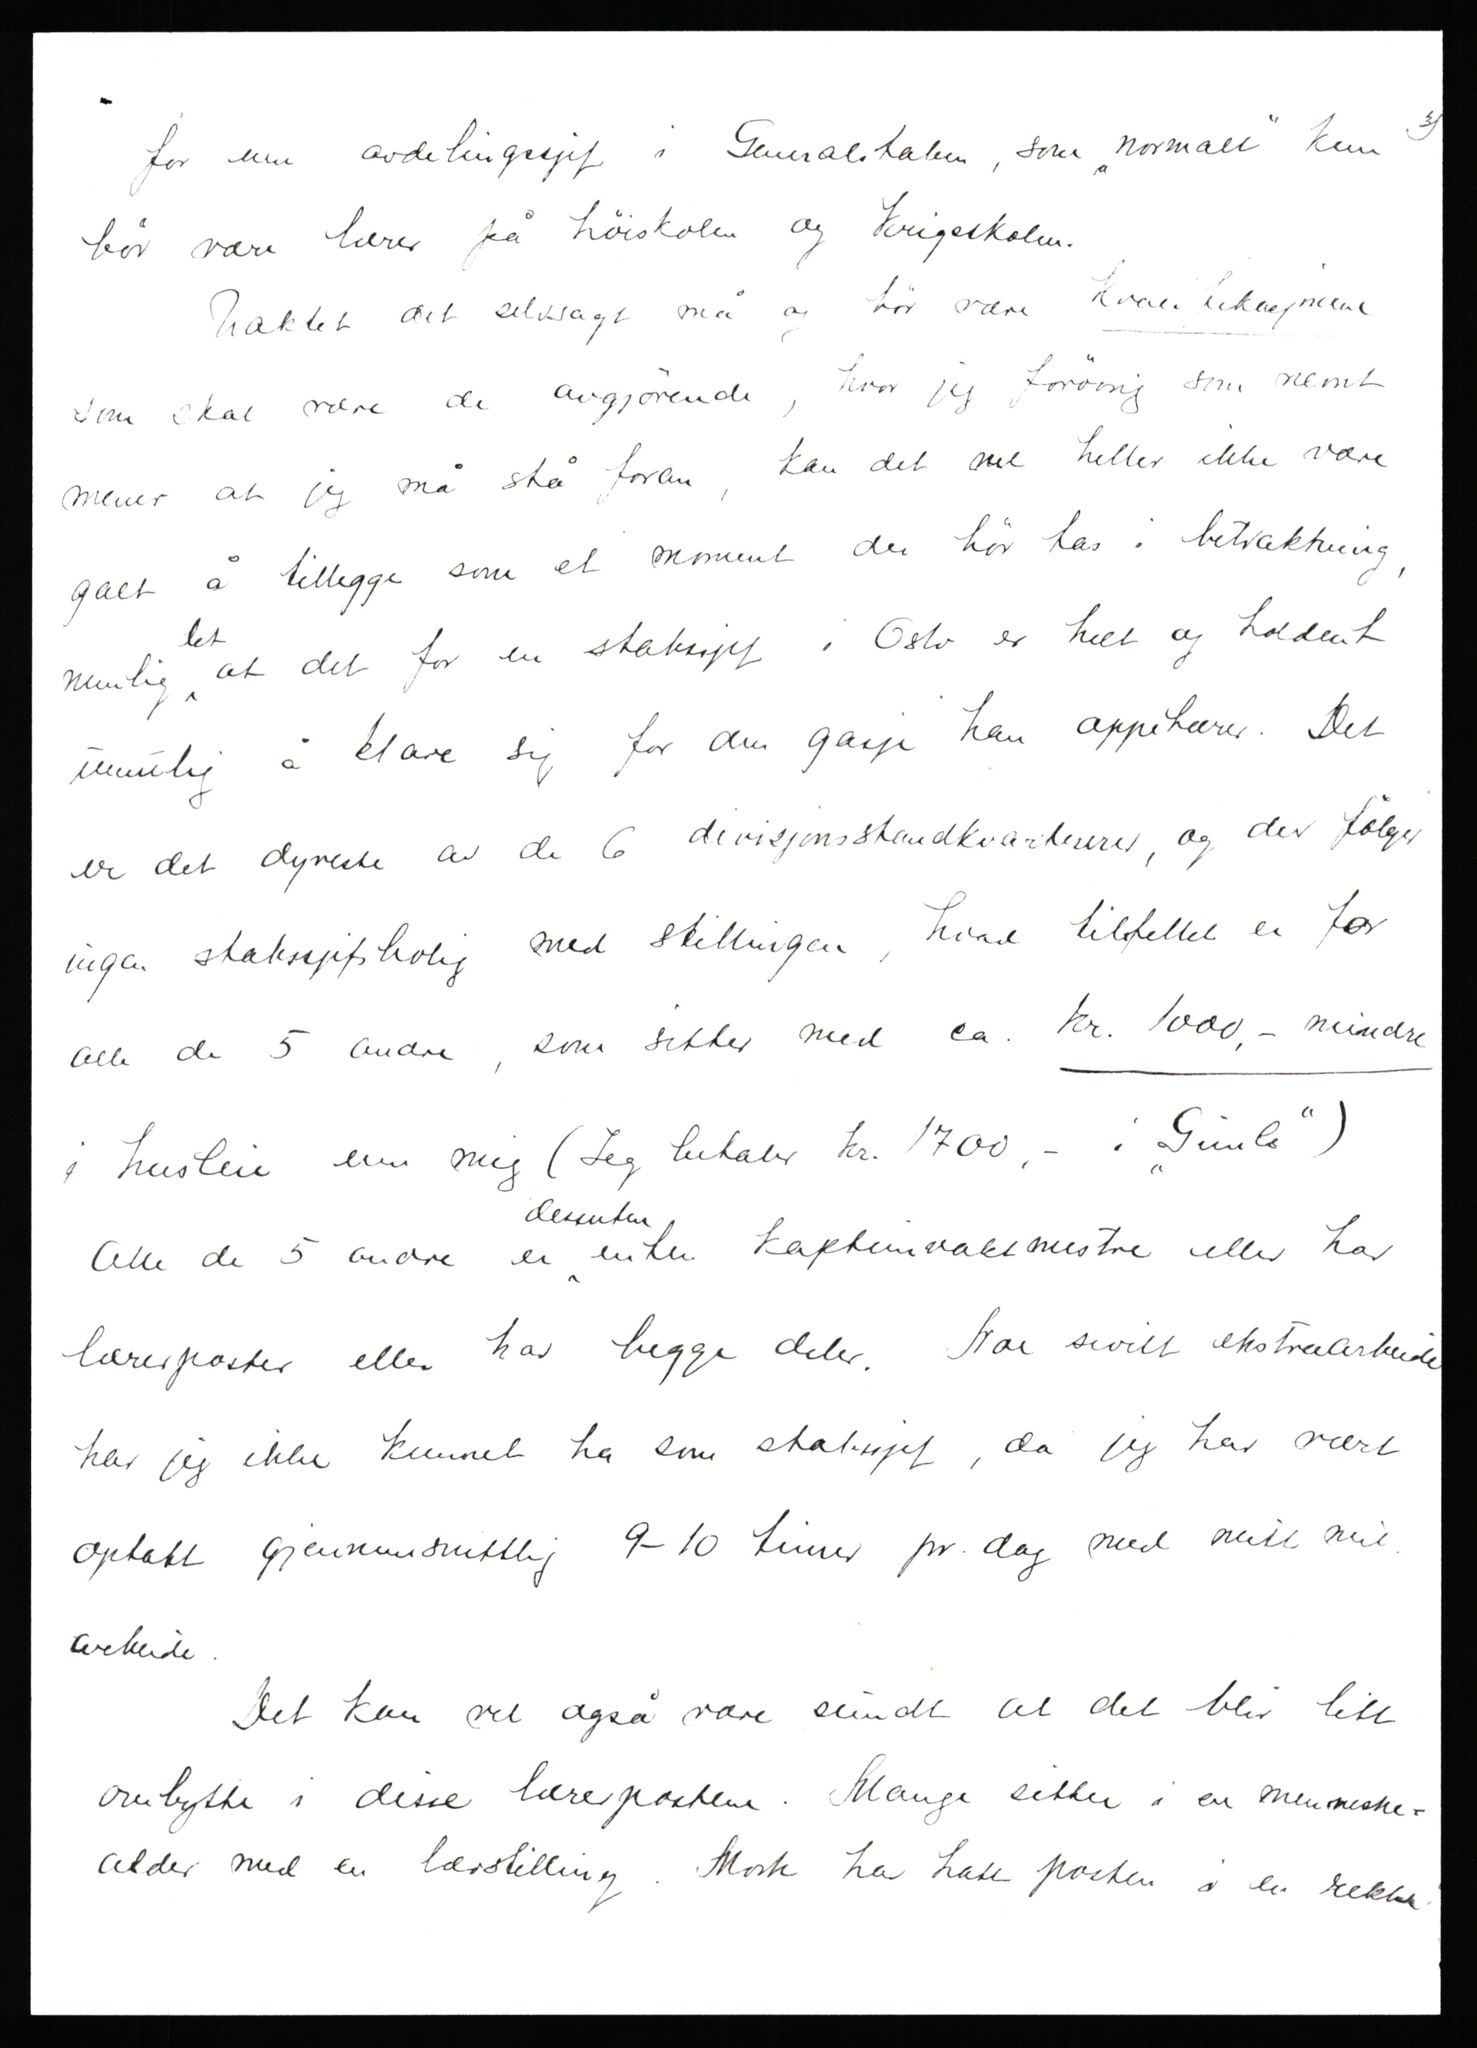 3)
for enn avdelingssjef i Generalstaben, som „normalt“ kun
bör være lærer på höiskolen og Krigsskolen.
Uaktet det selvsagt må og bör være kvalifikasjonene
som skal være de avgjörende, hvor jeg forövrig som nevnt
mener at jeg må stå foran, kan det vel heller ikke være
galt å tillegge som et moment der bör tas i betraktning,
nemlig det at det for en stabssjef i Oslo er helt og holdent
umulig å klare sig for den gasje han oppebærer. Det
er det dyreste av de 6 divisjonsstandkvarterer, og der fölger
ingen stabssjefsbolig med stillingen, hvad tilfellet er for
alle de 5 andre, som sitter med ca. kr. 1000,- mindre
i husleie enn mig (Jeg betaler kr. 1700,- i „Gimle“)
Alle de 5 andre er dessuten enten kapteinvaktmestre eller har
lærerposter eller har begge deler. Noe sivilt ekstraarbeide
har jeg ikke kunnet ha som stabssjef, da jeg har vært
optatt gjennemsnittlig 9-10 timer pr. dag med mitt mil.
arbeide.
Det kan vel også være sundt at det blir litt
ombytte i disse lærerpostene. Mange sitter i en menneske-
alder med en lærstilling. Mork har hatt posten i en rekke